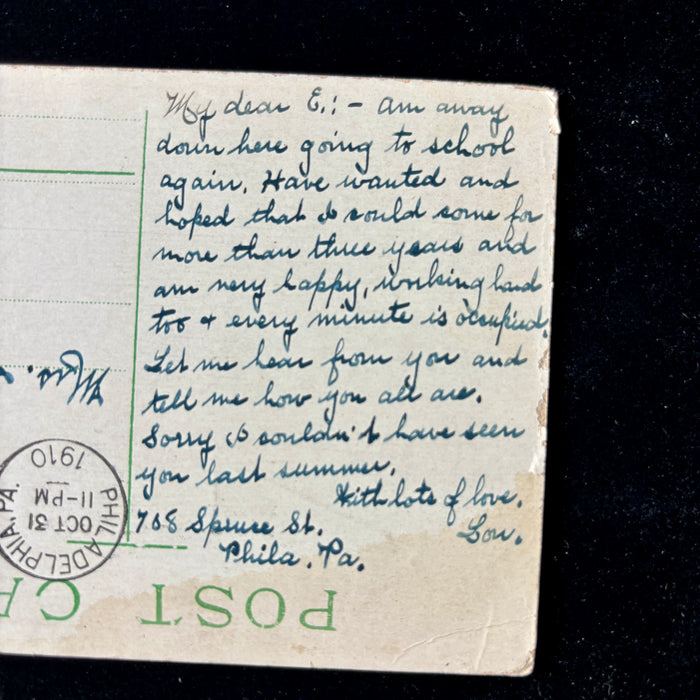 My dear E.:- Am away
down here going to school
again. Have wanted and
hoped that I could come for
more than three years and
am very happy, working hard
too & every minute is occupied.
Let me hear from you and
tell me how you all are.
Sorry I couldn't have seen
you last summer.
With lots of love.
Lou.
708 Spruce St.
Phila. Pa.
PHILADELPHIA, PA.
OCT 31
11-PM
1910
POST CA